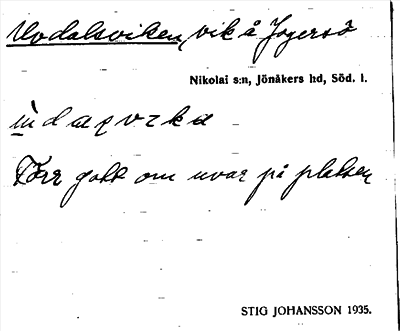 Uvdalsviken, vik å Jogersö
Nikolai s:n, Jönåkers hd, Söd. l.
Förr gott om uvar på platsen
STIG JOHANSSON 1935.